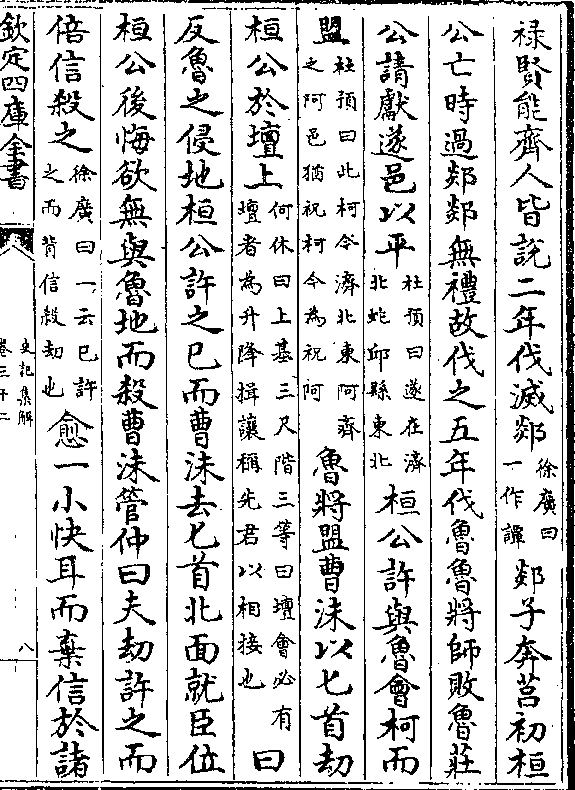 禄賢能齊人皆說二年伐滅郯徐廣曰一作譚郯子奔莒初桓
公亡時過郯郯無禮故伐之五年伐魯魯將師敗魯莊
公請獻遂邑以平杜預曰遂在濟北虵邱縣東北桓公許與魯會柯而
盟杜預曰此柯今濟北東阿齊之阿邑猶祝柯今為祝阿魯將盟曹沬以匕首劫
桓公於壇上何休曰土基三尺階三等曰壇會必有壇者為升降揖讓稱先君以相接也曰
反魯之侵地桓公許之已而曹沬去匕首北面就臣位
桓公後悔欲無與魯地而殺曹沬管仲曰夫劫許之而
倍信殺之徐廣曰一云已許之而背信殺劫也愈一小快耳而棄信於諸
欽定四庫全書
史記集解
卷三十二
八